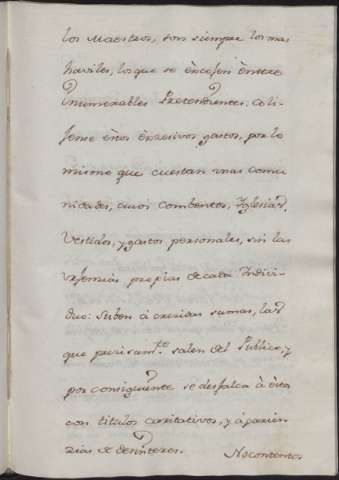 los Maestros, son siempre los mas
haviles, los que se escojen entre
inumerables Pretendientes. Coli-
jense estos excesivos gastos, por lo
mismo que cuestan unas comu
nidades, cuios combentos, Iglesias,
Vestidos, y gastos personales, sin las
urjencias propias de cada Indivi-
duo: Suben à crecidas sumas, las
que precisamte. salen del Publico, y
por consiguiente se desfalca à este
con titulos caritativos, y aparien
zias de desinteres. No contentos